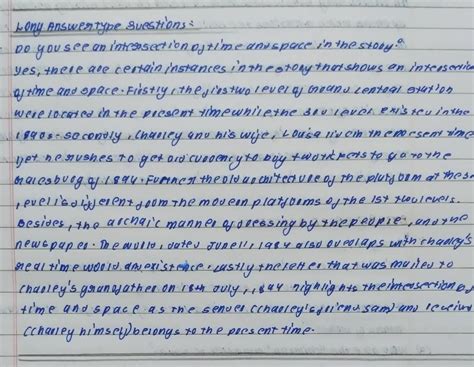 Long Answer type Questions:
Do you see an intersection of time and space in the story?
Yes, there are certain instances in the story that shows an intersection
of time and space. Firstly, the first two level of Grand Central Station
were located in the present time while the 3rd level existed in the
1890s. Secondly, Charley and his wife, Louisa live in the present time
yet he rushes to get old currency to buy two tickets to go to the
Galesburg of 1894. Further the old architecture of the platform at the 3rd
level is different from the modern platforms of the 1st two levels.
Besides, the archaic manner of dressing by the people, and the
newspaper. The World, dated June 11, 1894 also overlaps with Charley's
real time world and existence. Lastly the letter that was mailed to
Charley's grandfather on 18th July, 1894 highlights the intersection of
time and space as the sender (Charley's friend Sam) and receiver
(Charley himself) belongs to the present time.